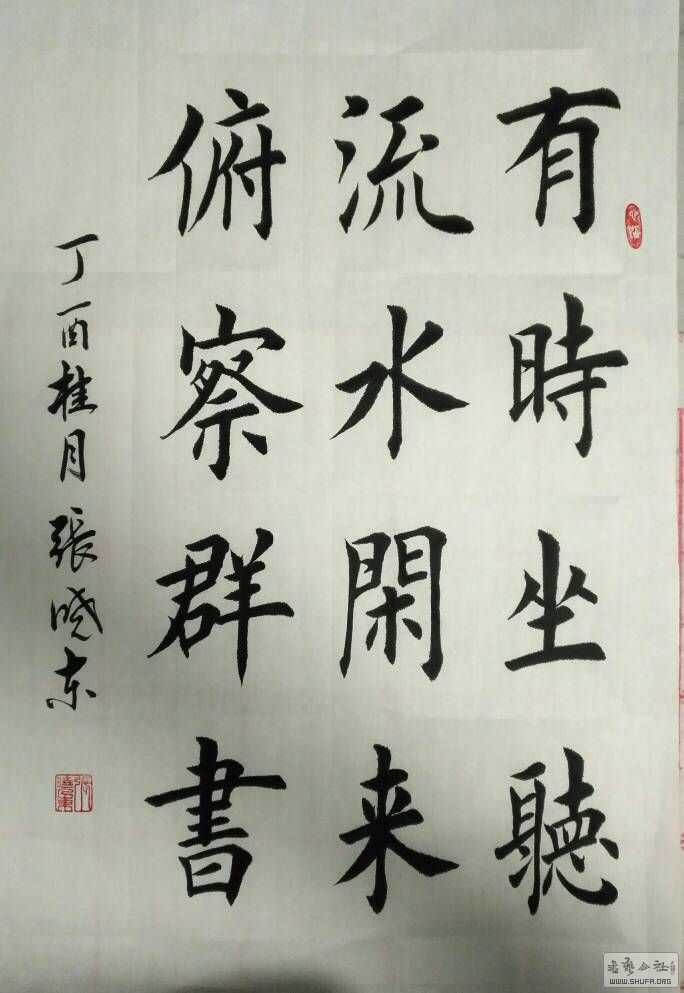 有時坐聽
流水閑来
俯察群書
丁酉桂月 張曉东
WWW.SHUFA.ORG